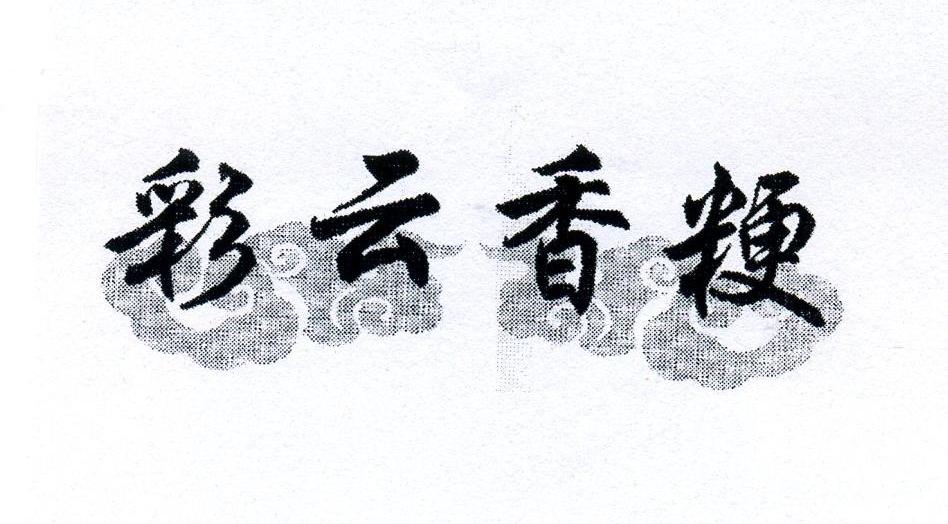 彩云香粳